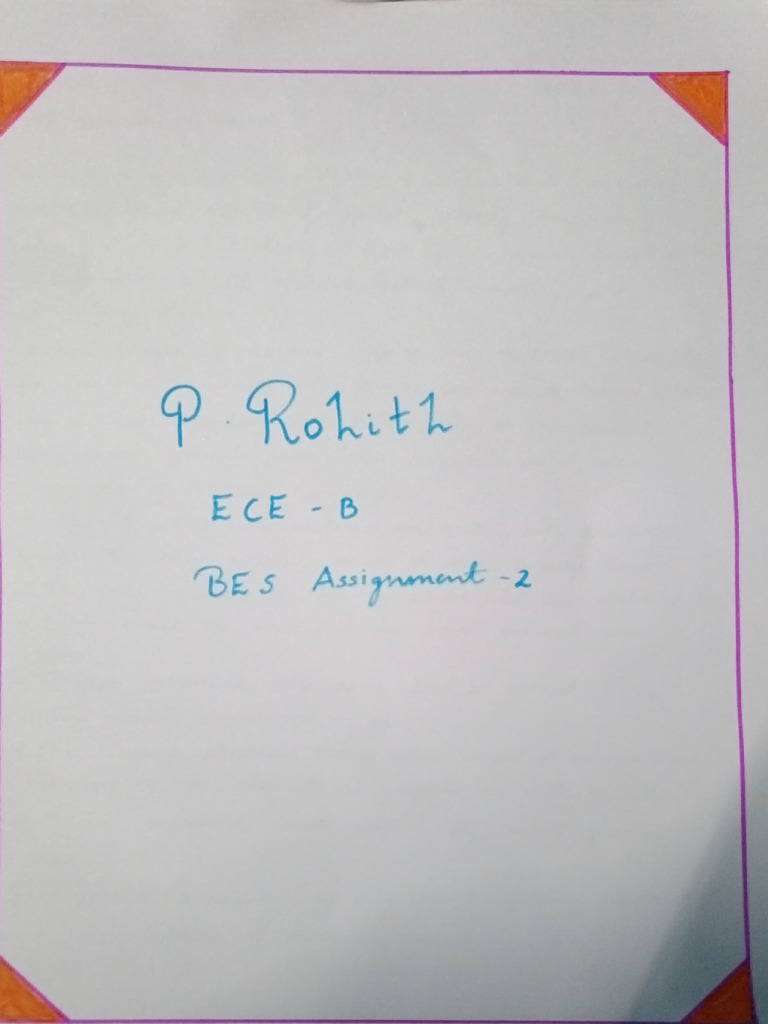 P. Rohith
ECE - B
BES Assignment - 2